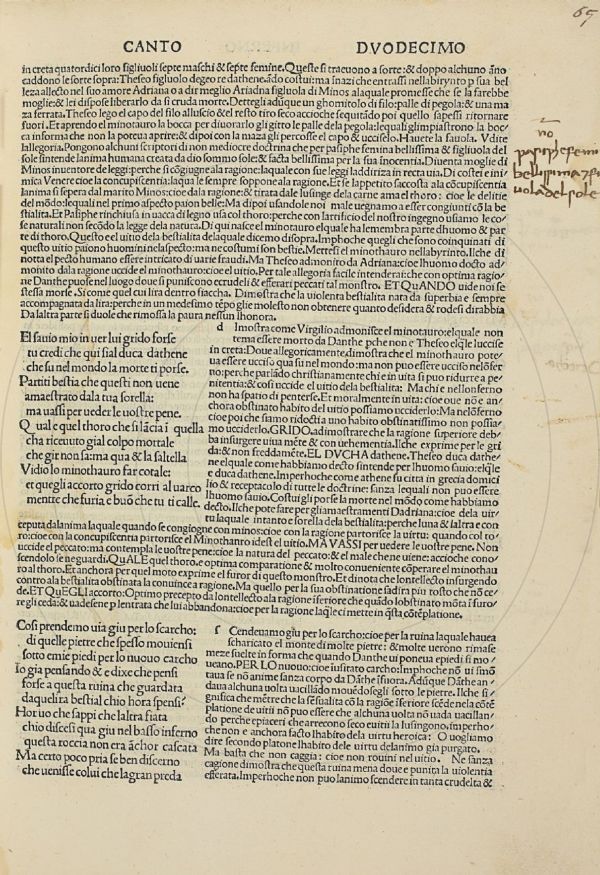 65
CANTO DVODECIMO
in creta quatordici loro figliuoli septe maschi & septe femine. Queste si traeuono a sorte: & doppo alchuno āno
caddono le sorte sopra: Theseo figluolo degeo re dathene. ādo costui: ma ſnāzi che entrassi nellabirynto p sua bel
leza allecto nel suo amore Adriana o dir meglio Ariadna figluola di Minos alaquale promesse che se la farebbe
moglie: & lei dispose liberarlo da sí cruda morte. Dettegli adūque un ghomitolo di filo: palle di pegola: & una ma
za ferrata. Theseo lego el capo del filo alluscio & el resto tiro seco accioche sequitādo poi quello sapessi ritornare
fuori. Et aprendo el minotauro la bocca per diuorarlo gli gitto le palle dela pegola: lequali glimpiastrono la boc
ca in forma che non la poteua aprire: & dipoi con la maza gli percosse el capo & ucciselo. Hauete la fauola. Vdire
lallegoria. Pongono alchuni scriptori di non mediocre doctrina che per pasiphe femina bellissima & figluola del
sole sintende lanima humana creata da dio sommo sole: & facta bellissima per la sua inocentia. Diuenta moglie di
Minos inuentore de leggi: perche si cōgiugne ala ragione: laquale con sue leggi laddiriza in recta uia. Di costei e ini
mica Venere cioe la concupiscentia: laquale sempre soppone ala ragione. Et se lappetito saccosta ala cōcupiscentia
lanima si spera dal marito Minos: cioe dala ragione: & tirata dale lusinge dela carne ama el thoro: cioe le delitie
del mōdo: lequali nel primo aspecto paion belle: Ma dipoi usandole noi male uegnamo a esser congiunti cō la be
stialita. Et Pasiphe rinchiusa in uacca di legno usa col thoro: perche con larrificio del nostro ingegno usamo le co
se naturali non secōdo la legge dela natura. Di qui nasce el minotauro el quale ha lemembra parte dhuomo & par
te di thoro. Questo e el uitio dela bestialita delaquale dicemo disopra. Imphoche quegli che sono coinquinati di
questo uitio paiono huomini nelaspecto: ma ne costumi son bestie. Mettesi el minotauro nellabyrinto. Ilche di
nota el pecto humano essere intricato di uarie fraudi. Ma Theseo admonito da Adriana: cioe lhuomo docto ad
monito dala ragione uccide el minothauro: cioe el uitio. Per tale allegoria facile intenderai: che con optima ragio
ne Danthe puose nel luogo doue si puniscono ecrudeli & efferati peccati tal monstro. ET QVANDO uide noi se
stessa morse. Si come quel cui lira dentro fiaccha. Dimostra che la uiolenta bestialita nata da superbia e sempre
accompagnata da lira: perche in un medesimo tēpo gli e molesto non obtenere quanto desidera & rodesi dirabbia
Da laltra parte si duole che rimossa la paura nessun lhonora.
El sauio mio in uer lui grido forse
tu credi che qui sia l duca dathene
che su nel mondo la morte ti porse.
Partiti bestia che questi non uene
amaestrato dala tua sorella:
ma uassi per ueder le uostre pene.
Qual e quel thoro che si lācia i quella
cha riceuuto gial colpo mortale
che gir non sa ma qua & la saltella
Vidio lo minothauro far cotale:
et quegli accorto grido corri al uarco
mentre che furia e buō che tu ti calle.
d Imostra come Virgilio admonisce el minotauro: elquale non
tema essere morto da Danthe pche non e Theseo elqle luccise
in creta: Doue allegoricamente dimostra che el minothauro pote
ua essere ucciso qua su nel mondo: ma non puo essere ucciso nelōfer
no: perche parlādo christianamente chi e in uita si puo ridurre a pe
nitentia: & cosi uccide el uitio dela bestialita: Ma chi e nellonferno
non ha spatio di penterse. Et moralmente in uita: cioe oue nō e an
chora obstinato habito del uitio possiamo ucciderlo: Ma nelōferno
cioe poi che siamo ridocti a uno habito obstinatissimo non possia
mo ucciderlo. GRIDO. adimostrare che la ragione superiore deb
ba insurgere uiua mēte & con uehementia. Ilche exprime per le gri
da: & non freddamēte. EL DVCHA dathene: Theseo duca dathe
ne elquale come habbiamo decto sintende per lhuomo sauio: elqle
e duca dathene. Imperhoche come athene fu citta in grecia domici
lio & receptacolo di tutte le doctrine: sanza lequali non puo essere
lhuomo sauio. Costui gli porse la morte nel mōdo come habbiamo
decto. Ilche pote fare per gli amaestramenti Dadriana: cioe dela uir
tu laquale intanto e sorella dela bestialita: perche luna & laltra e con
ceputa dalanima laquale quando se congiogne con minos: cioe con la ragione partorisce la uirtu: quando col to
ro: cioe con la concupiscentia partorisce el Minothauro idest el uitio. MA VASSI per uedere le uostre pene. Non
uccide el peccato: ma contempla le uostre pene: cioe la natura del peccato: & el male che ne uiene: accioche cono
scendolo se ne guardi. QVALE quel thoro. e optima comparatione & molto conueniente cōperare el minothau
ro al thoro. Et anchora per quel moto exprime el furor di questo monstro. Et dinota che lontellecto insurgendo
contro ala bestialita obstinata la conuince a ragione. Ma quello per la sua obstinatione sadira piu tosto che nō ce
de. ET QVEGLI accorto: Optimo precepto da lontellecto ala ragione iferiore che quādo lobstinato mōta i furo
re gli ceda: & uadesene p lentrata che lui abbandona: cioe per la ragione laqle ci mette in q̄sta cōtēplatione.
Cosi prendemo uia giu per lo scarcho:
di quelle pietre che spesso mouiensi
sotto emie piedi per lo nuouo carcho
Io gia pensando & e dixe che pensi
forse a questa ruina che guardata
daquelira bestial chio hora spensi?
Hor uo che sappi che laltra fiata
chio discesi qua giu nel basso inferno
questa roccia non era ācho r cascata
Ma certo poco pria se ben discerno
che uenisse colui che la gran preda
ſ Cendeuamo giu per lo scarcho: cioe per la ruina laquale hauea
scharicato el monte di molte pietre: & molte uerōno rimase
meze suelte in forma che quando Danthe ui poneua epiedi si mo
ueano. PER LO nuouo: cioe iusitato carcho: Imphoche nō ui smō
taua se nō anime sanza corpo da Dāthe ifuora. Adūque Dāthe an
daua alchuna uolta uacillādo mouēdosegli sotto le pietre. Ilche si
gnifica che mētre che la sēsualita cō la ragiōe iferiore scēde nela cōtē
platione de uitii nō puo essere che alchuna uolta nō uada uacillan
do perche epiaceri che arrecono seco euitii la lusingono. imperho
che non e anchora facto lhabito dela uirtu heroica: O uogliamo
dire secondo platone lhabito dele uirtu delanimo gia purgato.
Ma basta che non caggia: cioe non rouini nel uitio. Ne sanza
cagione dimostra che questa ruina mena doue e punita la uiolentia
efferata. Imperhoche non puo lanimo scendere in tanta crudelta &